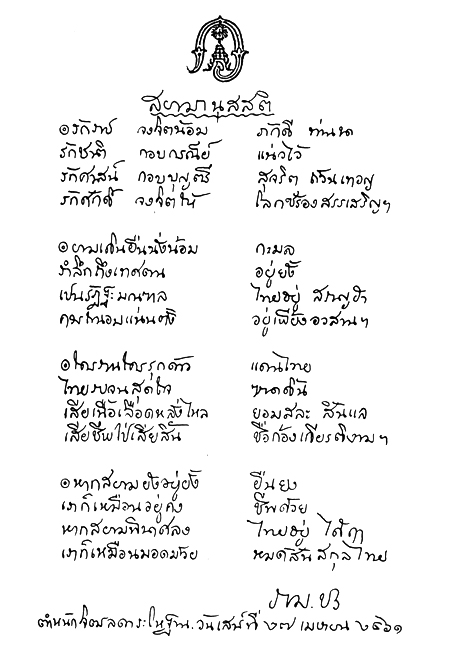 สยามานุสสติ
๏ รักราช จงจิตน้อม ภักดี ท่านนา
รักชาติ กอบกรณีย์ แน่วไว้
รักศาสน์ กอบบุญตรี สุจริต ถ้วนเทอญ
รักศักดิ์ จงจิตให้ โลกซร้องสรรเสริญฯ
๏ ยามเดินยืนนั่งน้อม กะมล
รำลึกถึงเทศตน อยู่ยั้ง
เปนรัฎฐะมณฑล ไทยอยู่ สราญฮา
ควรถนอมแน่นตั้ง อยู่เพี้ยงอวสานฯ
๏ ใครรานใครรุกด้าว แดนไทย
ไทยรบจนสุดใจ ขาดดิ้น
เสียเนื้อเลือดหลั่งไหล ยอมสละ สิ้นแล
เสียชีพไป่เสียสิ้น ชื่อก้องเกียรติงามฯ
๏ หากสยามยังอยู่ยั้ง ยืนยง
เราก็เหมือนอยู่คง ชีพด้วย
หากสยามพินาศลง ไทยอยู่ ได้ฤๅ
เราก็เหมือนมอดม้วย หมดสิ้นสกุลไทย
ราม.ปร
ตำหนักจิตรลดาระโหฐาน. วันเสาร์ที่ ๒๗ เมษายน ๒๔๖๑